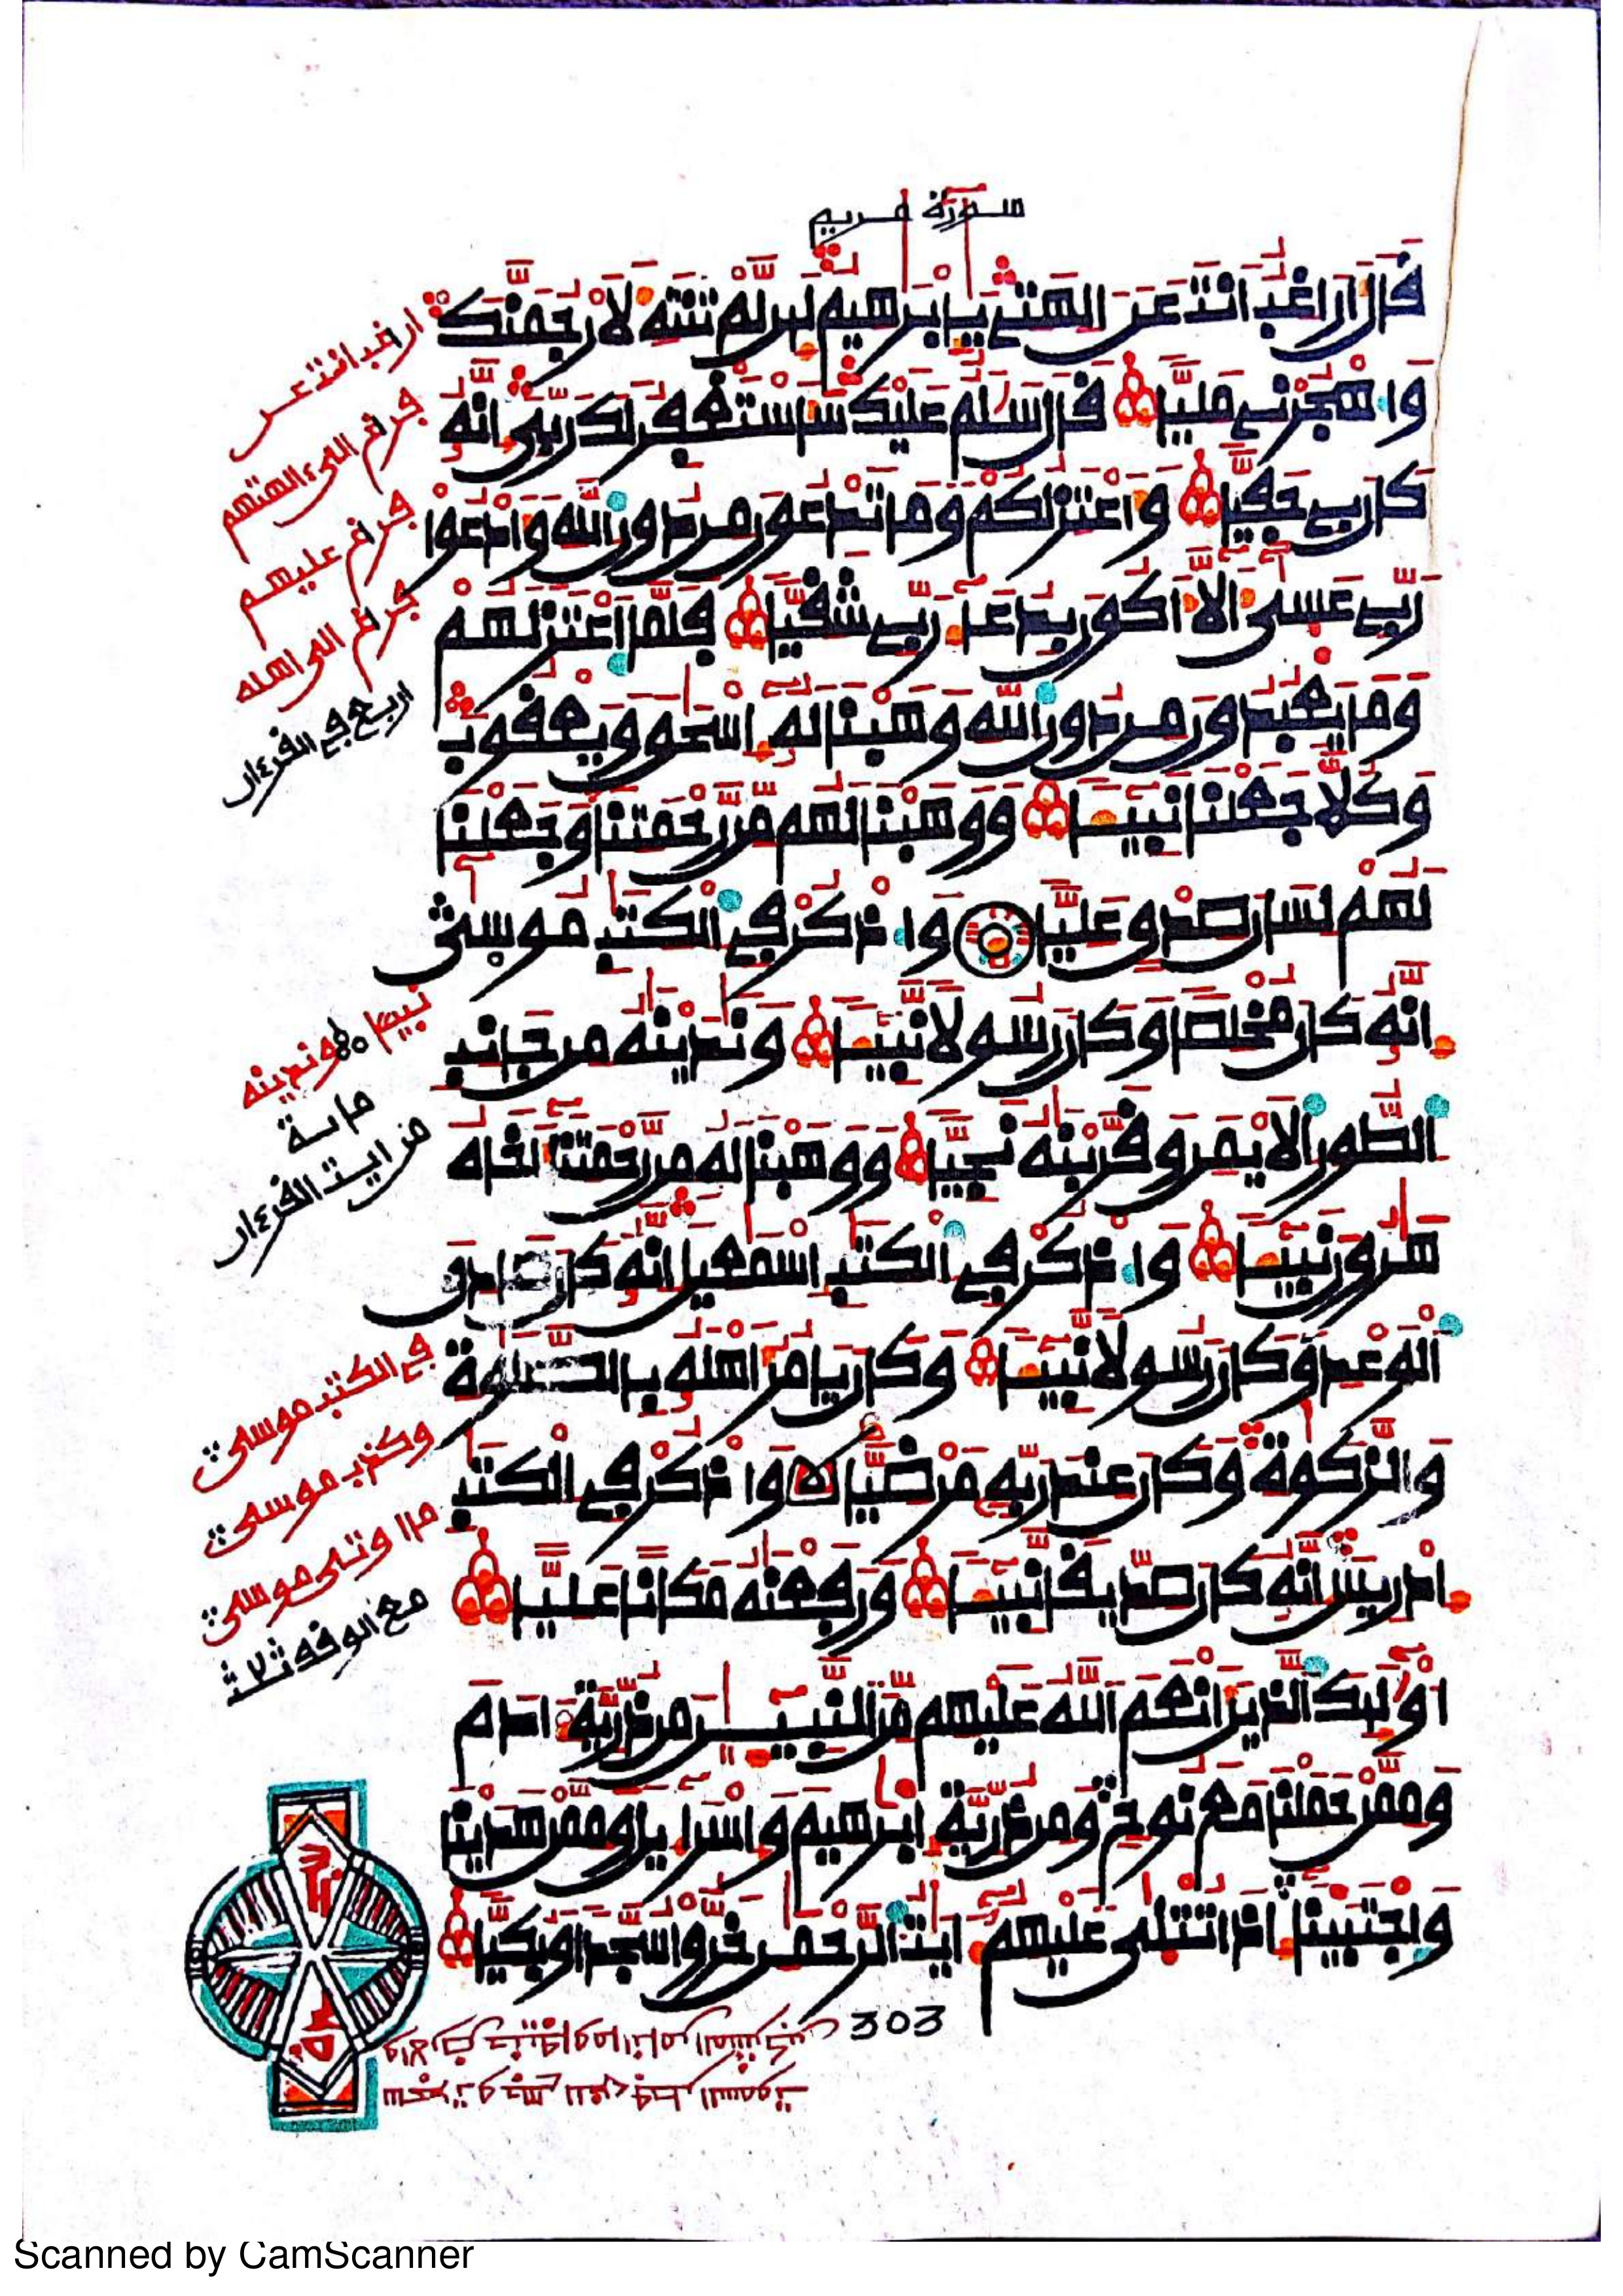 سورة مريم
قال اراغب انت عن الهتى يابرهيم لين لم تنته لارجمنك
واهجرنى مليا قال سلم عليك ساستغفر لك ربى انه
كان بى حفيا واعتزلكم وما تدعون من دون الله وادعوا
ربى عسى الا اكون بدعاء ربى شقيا فلما اعتزلهم
وما يعبدون من دون الله وهبنا له اسحق ويعقوب
وكلا جعلنا نبيئا ووهبنا لهم من رحمتنا وجعلنا
لهم لسان صدق عليا واذكر فى الكتب موسى
انه كان مخلصا وكان رسولا نبيئا وندينه من جانب
الطور الايمن وقربنه نجيا ووهبنا له من رحمتنا اخاه
هرون نبيئا واذكر فى الكتب اسمعيل انه كان صادق
الوعد وكان رسولا نبيئا وكان يامر اهله بالصلوة
والزكوة وكان عند ربه مرضيا واذكر فى الكتب
ادريس انه كان صديقا نبيئا ورفعنه مكانا عليا
اوليك الذين انعم الله عليهم من النبيين من ذرية ادم
وممن حملنا مع نوح ومن ذرية ابرهيم واسراءيل وممن هدينا
واجتبينا اذا تتلى عليهم ايت الرحمن خروا سجدا وبكيا
303
اراغب انت عن
فراغ الى ءالهتهم
فراغ عليهم
فراغ الى اهله
اربع فى القرءان
نبيئا وندينه
ماية
من ايت القرءان
فى الكتب موسى
وكذب موسى
موسى
مع الوقف
Scanned by CamScanner